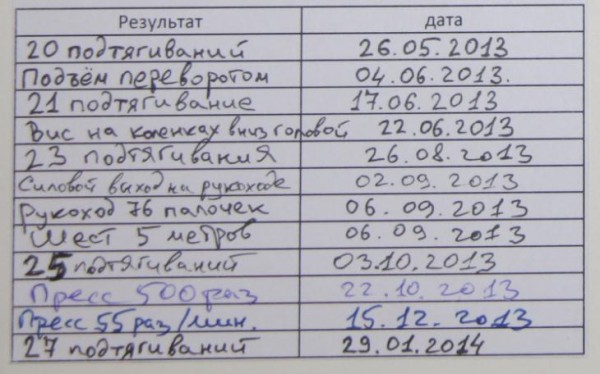 Результат дата
20 подтягиваний 26.05.2013
Подъём переворотом 04.06.2013.
21 подтягивание 17.06.2013
Вис на коленках вниз головой 22.06.2013
23 подтягивания 26.08.2013
Силовой выход на рукоходе 02.09.2013
Рукоход 76 палочек 06.09.2013
Шест 5 метров 06.09.2013
25 подтягиваний 03.10.2013
Пресс 500 раз 22.10.2013
Пресс 55 раз/мин. 15.12.2013
27 подтягиваний 29.01.2014